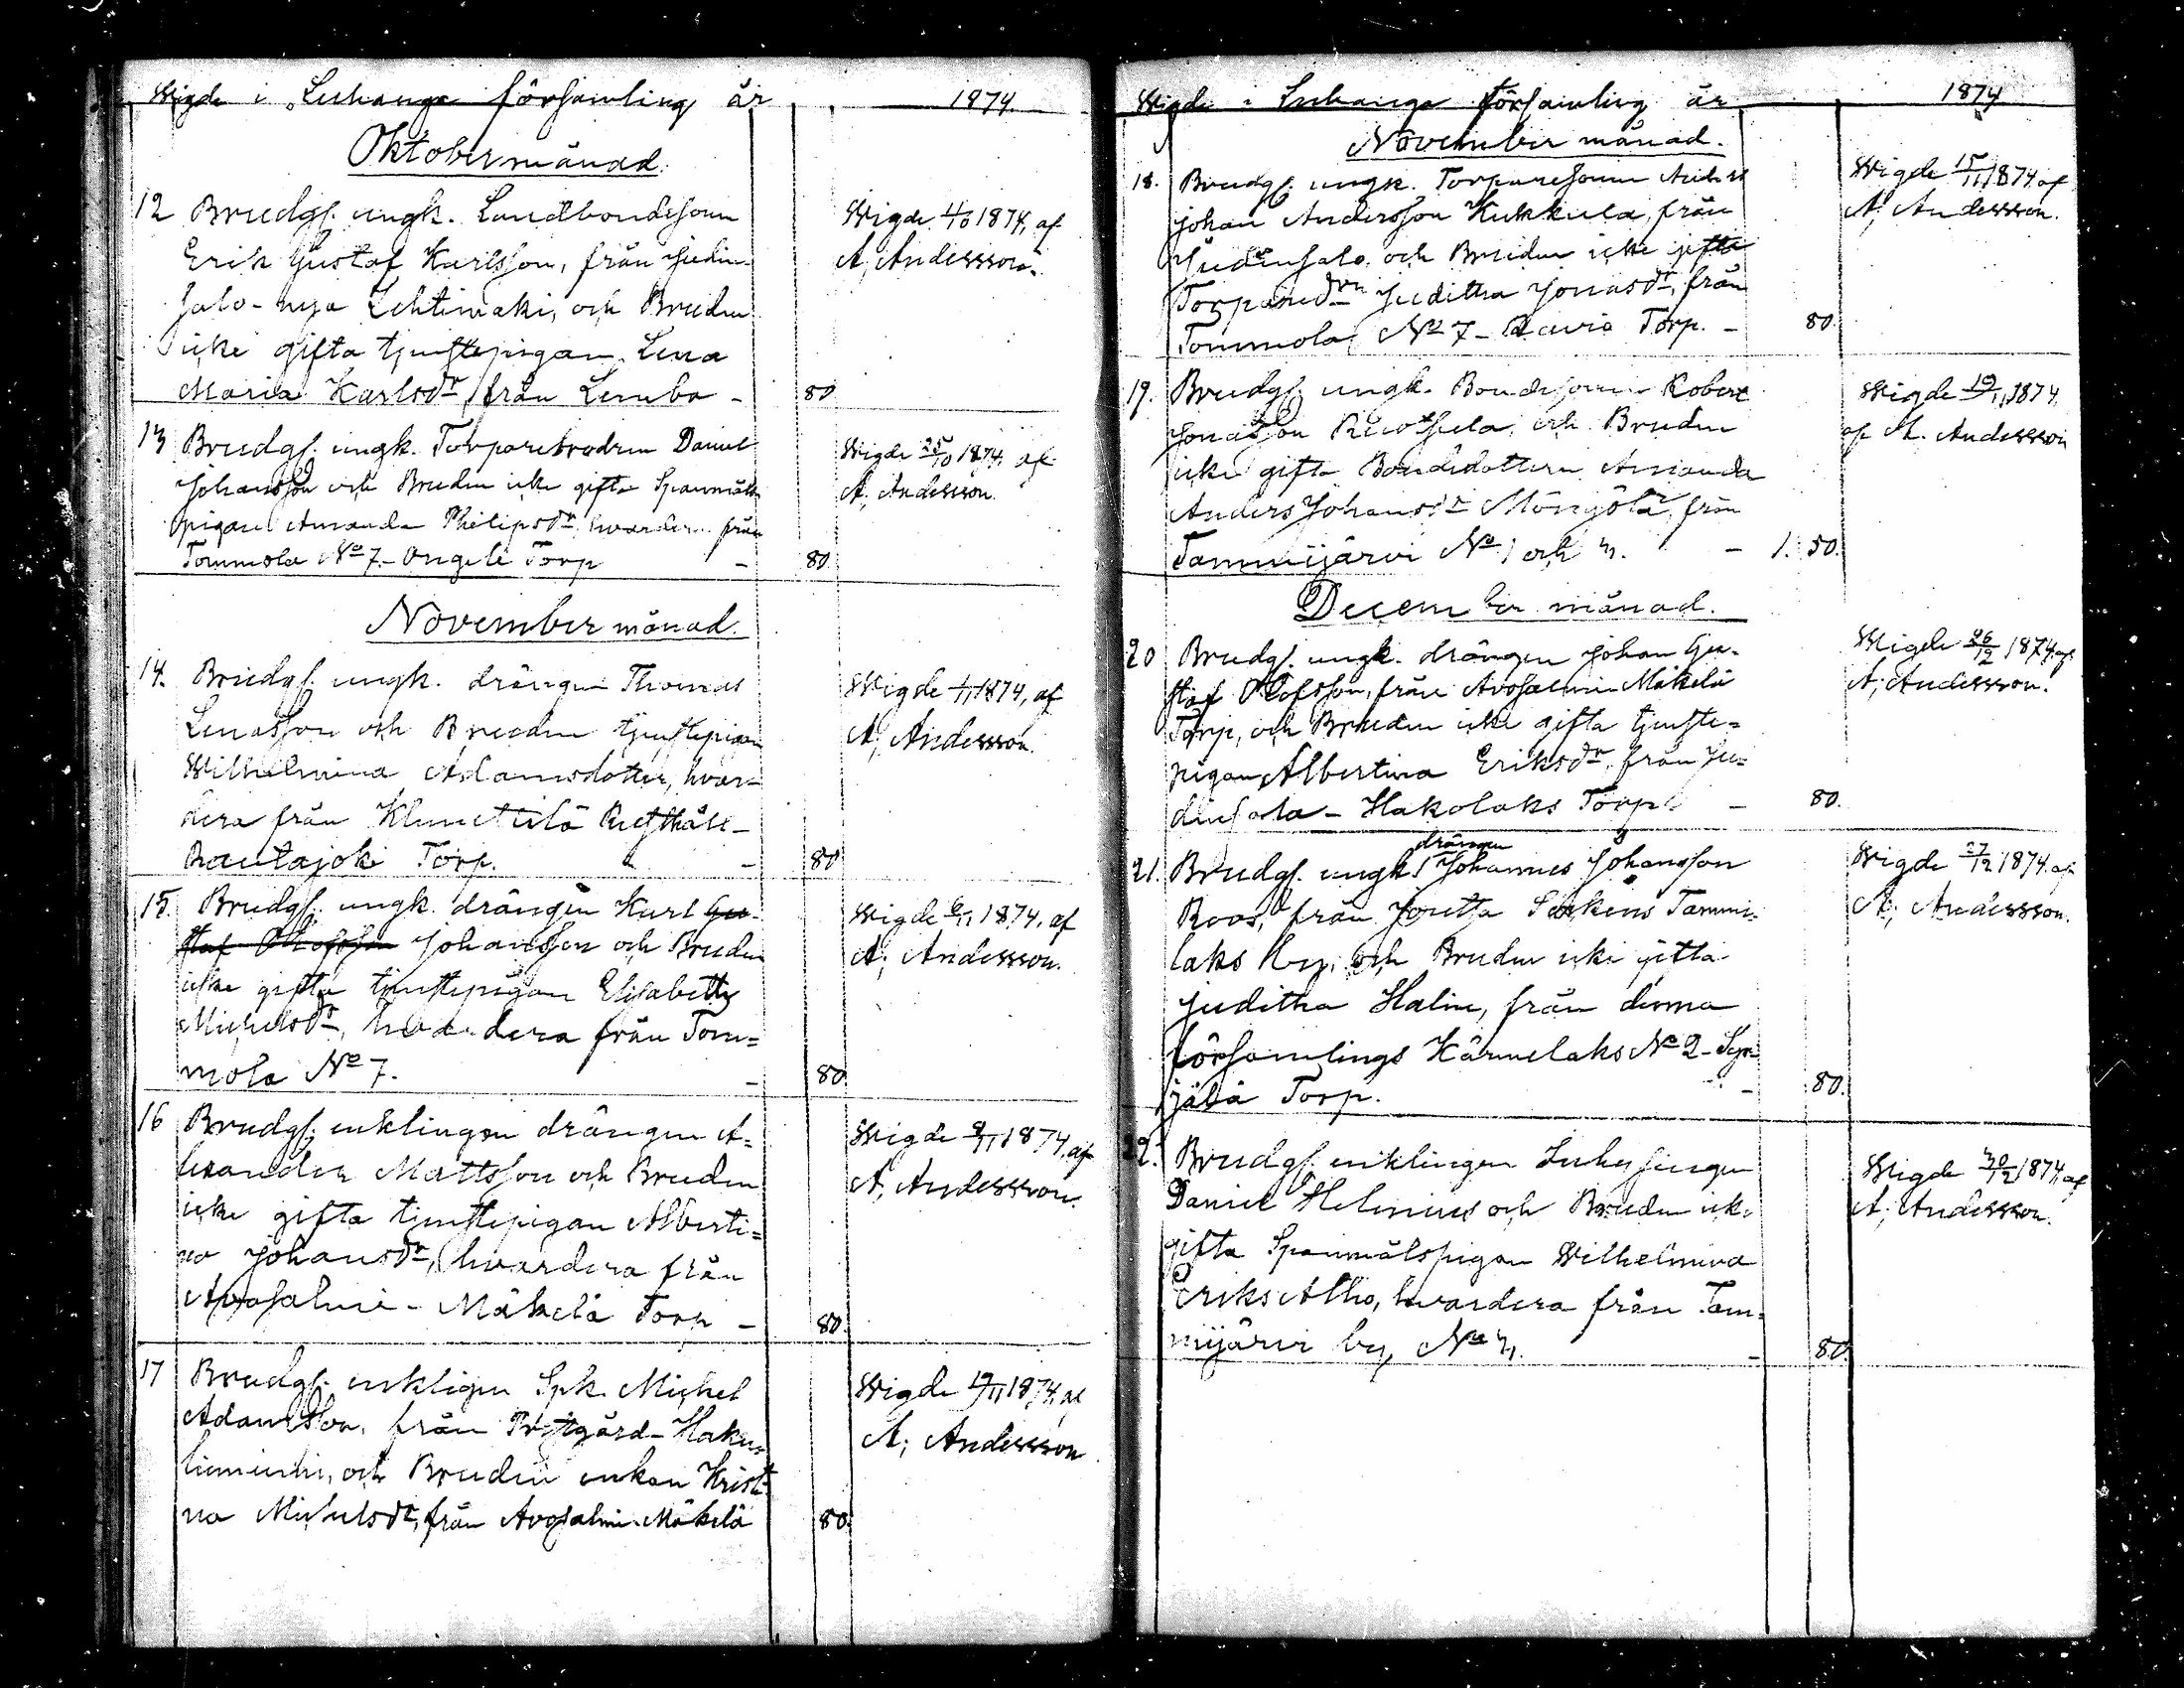 Wigde i Luhanga församling år 1874.
Oktober månad.
12 Brudg. ungk. Landbondesonen Wigde 4/10 1874, af
Erik Gustaf Karlsson, från Judin- A. Andersson.
salo-nya Lehtimaki, och Bruden
icke gifta tjenstepigan Lena
Maria Karlsdr, från Lembo - 80
13 Brudg. ungk. Torparebrodren Daniel Wigde 25/10 1874, af
Johansson och Bruden icke gifta Spanmåls A. Andersson.
pigan Amanda Philipsdr, hvardera från
Tommola No 7.- Ongeli Torp - 80.
November månad.
14. Brudg. ungk. drängen Thomas Wigde 1/11 1874, af
Lenasson och Bruden tjenstepigan A. Andersson.
Wilhelmina Adamsdotter, hvar-
dera från Klemettilä
Rautajoki Torp. - 80
15. Brudg. ungk. drängen Karl Gu- Wigde 6/11 1874, af
staf Olofsson Johansson och Bruden A. Andersson.
icke gifta tjenstepigan Elisabeth
Michelsdr, hvardera från Tom=
mola No 7. - 80.
16 Brudg. enklingen drängen A= Wigde 8/11 1874, af
lexander Mattsson och Bruden A. Andersson.
icke gifta tjenstepigan Alberti=
na Johansdr, hvardera från
Avosalmi - Mäkelä Torp - 80.
17 Brudg. enklingen Spk. Michel Wigde 19/11 1874, af
Adamsson, från Prestgård - A. Andersson
och Bruden enkan Kristi-
na Michelsdr, från Avosalmi-Mäkelä 80.
Wigde i Luhanga församling år 1874
November månad.
18. Brudg. ungk. Torparesonen Anders Wigde 15/11 1874, af
Johan Andersson Kukkula, från A. Andersson.
Judinsalo, och Bruden icke gifta
Torparedrn Juditha Jonasdr, från
Tommola No 7 - Torp. - 80.
19. Brudg. ungk. Bondesonen Robert Wigde 19/11 1874,
Jonasson Ruotsula och Bruden af A. Andersson
icke gifta Bondedottern Amanda
Anders Johansdr från
Tammijärvi No 1 och 3. - 1. 50.
December månad.
20 Brudg. ungk. drängen Johan Gu- Wigde 26/12 1874, af
staf Olofsson, från Avosalmi Mäkelä A. Andersson.
Torp, och Bruden icke gifta tjenste=
pigan Albertina Eriksdr, från Ju=
dinsalo - Hakolaks Torp - 80.
drängen
21. Brudg. ungk. Johannes Johansson Wigde 27/12 1874, af
Roos, från Joutsa Tammi- A. Andersson.
laks by, och Bruden icke gifta
Juditha Halin, från denna
församlings Kärmelaks No 2 - Syr-
jälä Torp. - 80.
22. Brudg. enklingen Inhysingen Wigde 30/12 1874, af
Daniel Helenius och Bruden icke A. Andersson.
gifta Spanmålspigan Wilhelmina
Eriks Alho, hvardera från Tam-
mijärvi by, No 3. - 80.